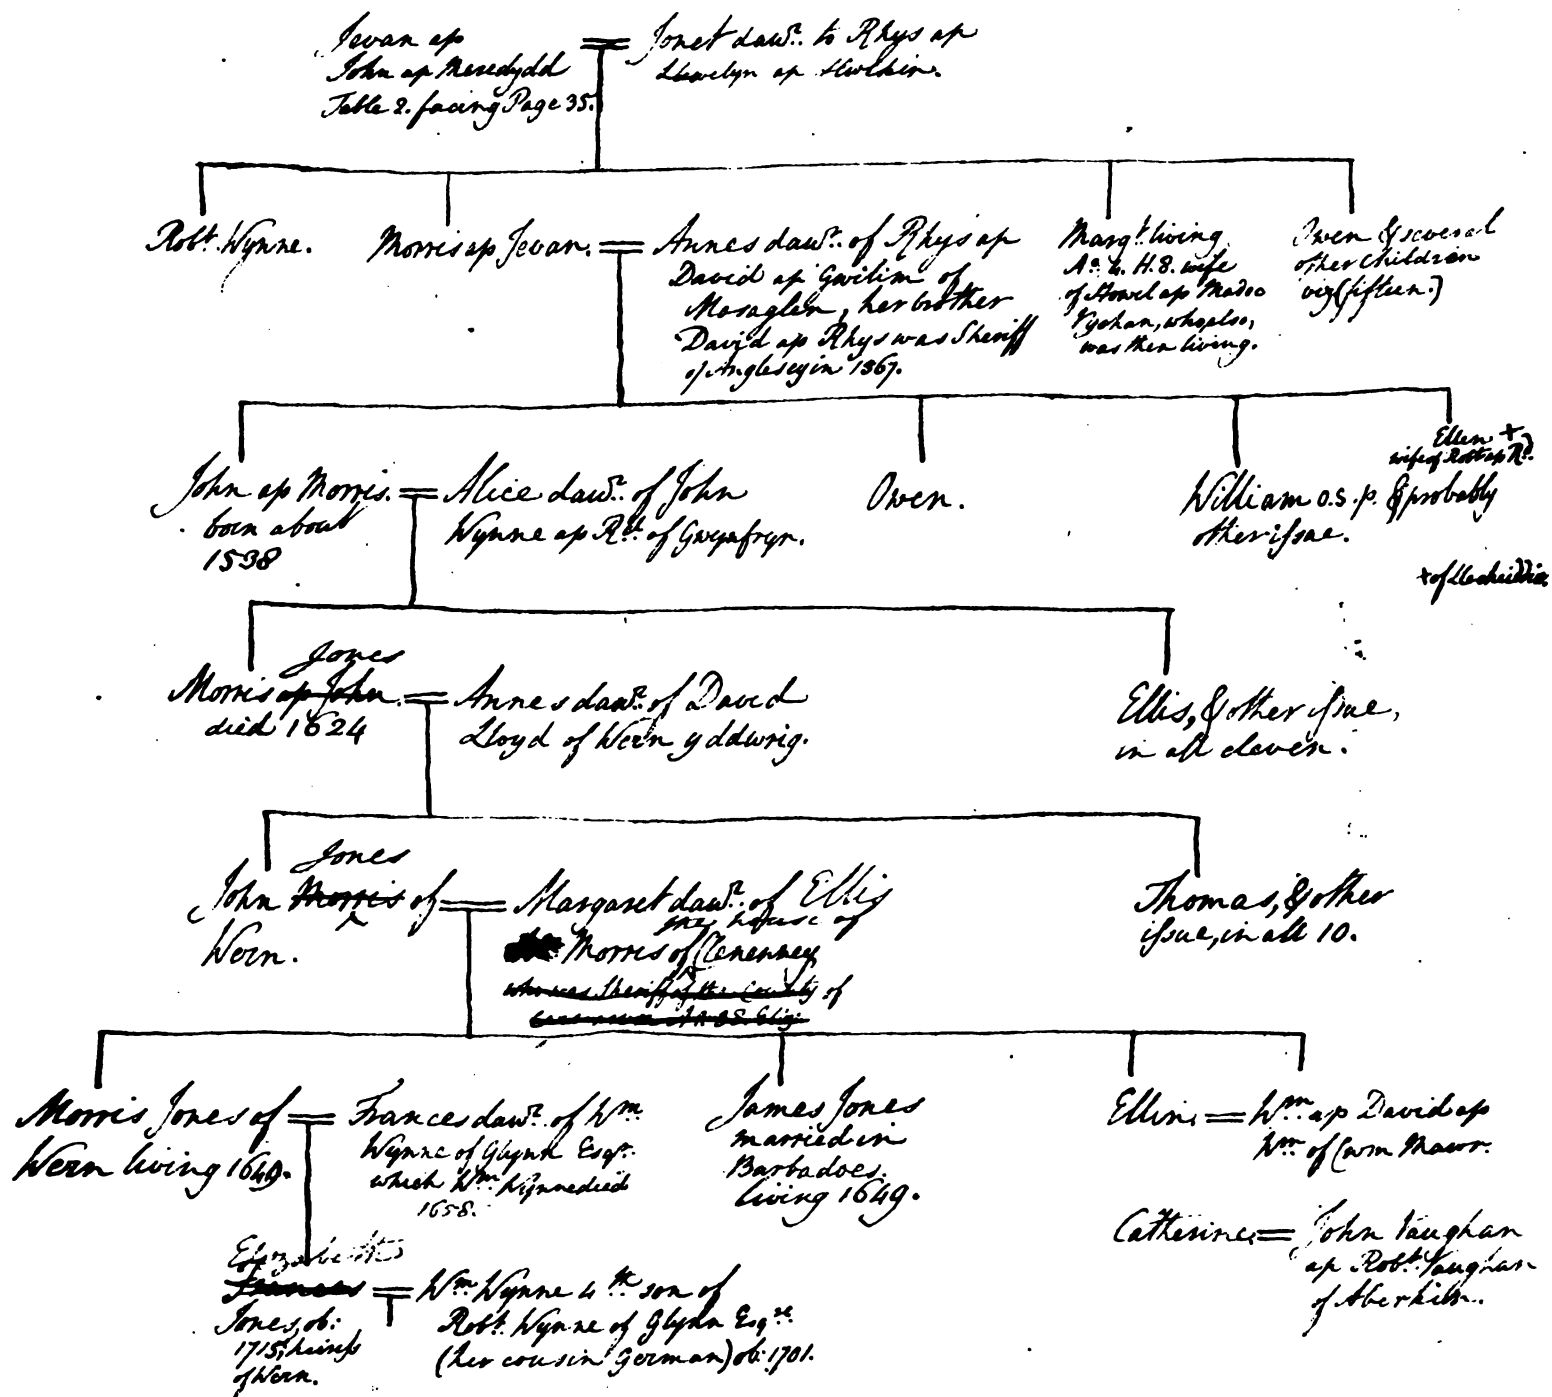 Jevan ap
John ap Meredydd
Table 2. facing Page 35.
Jonet dawr. to Rhys ap
Llewelyn ap Hwlkin.
Robt. Wynne.
Morris ap Jevan.
Annes dawr. of Rhys ap
David ap Gwilim of
Mosaglen, her brother
David ap Rhys was Sheriff
of Anglesey in 1567.
Margt. living
Ao. 4. H. 8. wife
of Howel ap Madoc
Vychan, who also,
was then living.
Owen & several
other children
viz (fifteen.)
John ap Morris.
born about
1538
Alice dawr. of John
Wynne ap Rt. of Gwynfryn.
Owen.
William o.s.p. & probably
other issue.
Ellen +
wife of Robt ap Rd.
+ of
Jones
Morris ap John.
died 1624
Annes dawr. of David
Lloyd of Wern y ddwrig.
Ellis, & other issue,
in all eleven.
Jones
John Morris of
Wern.
Margaret dawr. of Ellis
the house of
Morris of Clenenney
who was Sheriff of the County of
Thomas, & other
issue, in all 10.
Morris Jones of
Wern living 1649.
Frances dawr. of Wm
Wynne of Glynn Esqr.
which Wm Wynne died
1658.
James Jones
married in
Barbadoes.
living 1649.
Ellin
Wm ap David ap
Wm of Cwm Mawr.
Catherine
John Vaughan
ap Robt. Vaughan
of Aberkiln.
Elizabeth
Frances
Jones, ob:
1715, heiress
of Wern.
Wm Wynne 4th son of
Robt. Wynne of Glynn Esqre.
(her cousin German) ob: 1701.